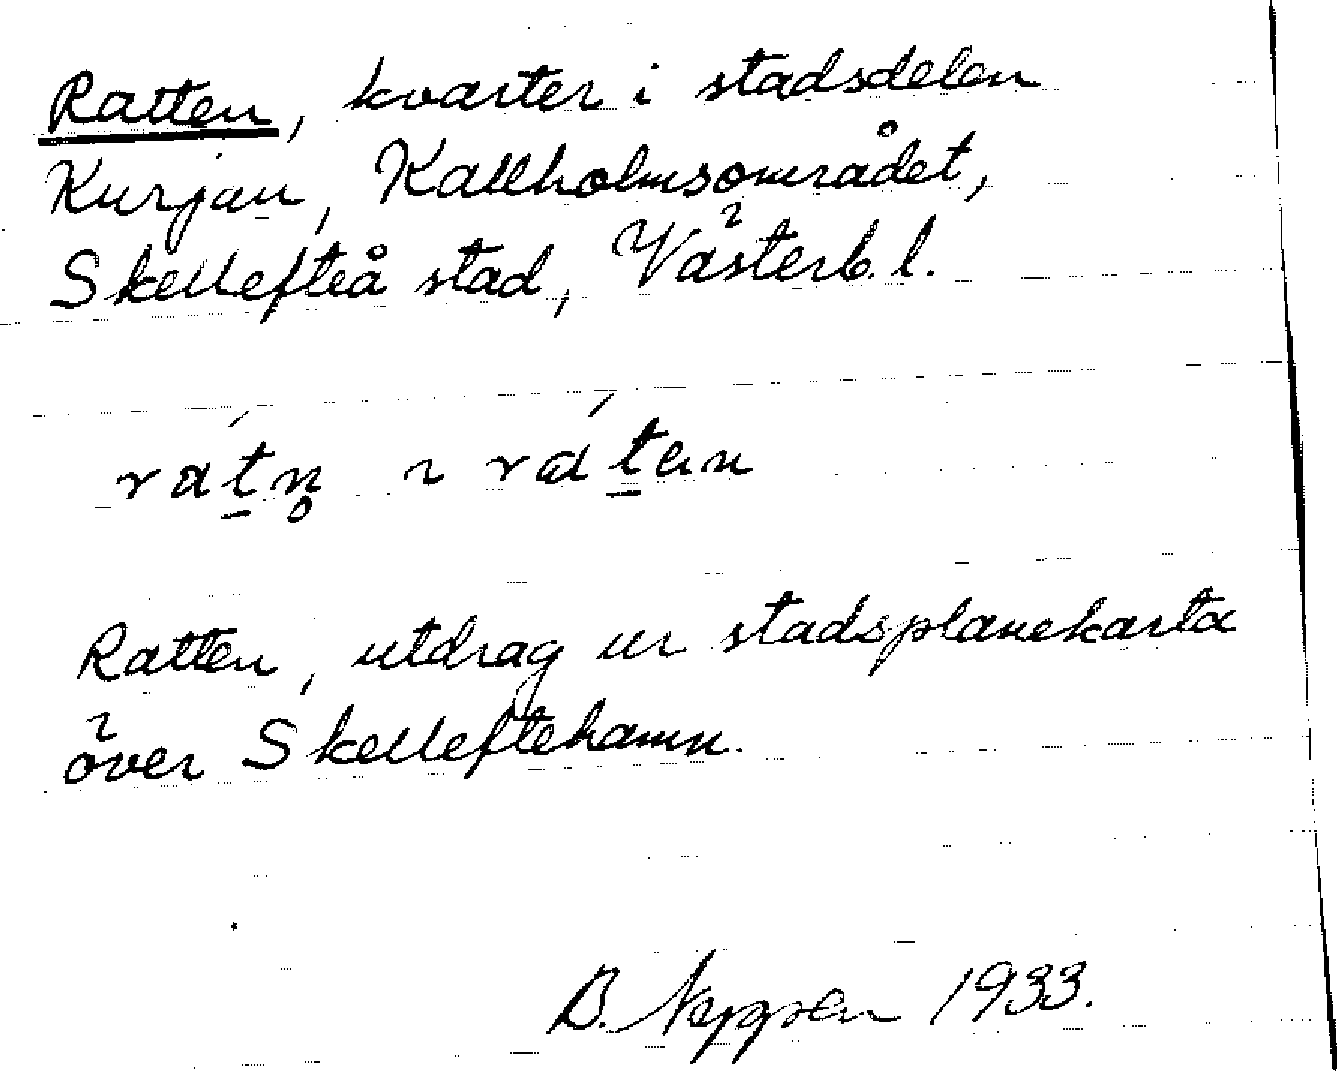 Ratten, kvarter i stadsdelen
Kurjan, Kallholmsområdet,
Skellefteå stad, Västerb. l.
rátn̥ ~ ráten
Ratten, utdrag ur stadsplanekarta
över Skelleftehamn.
B. 1933.